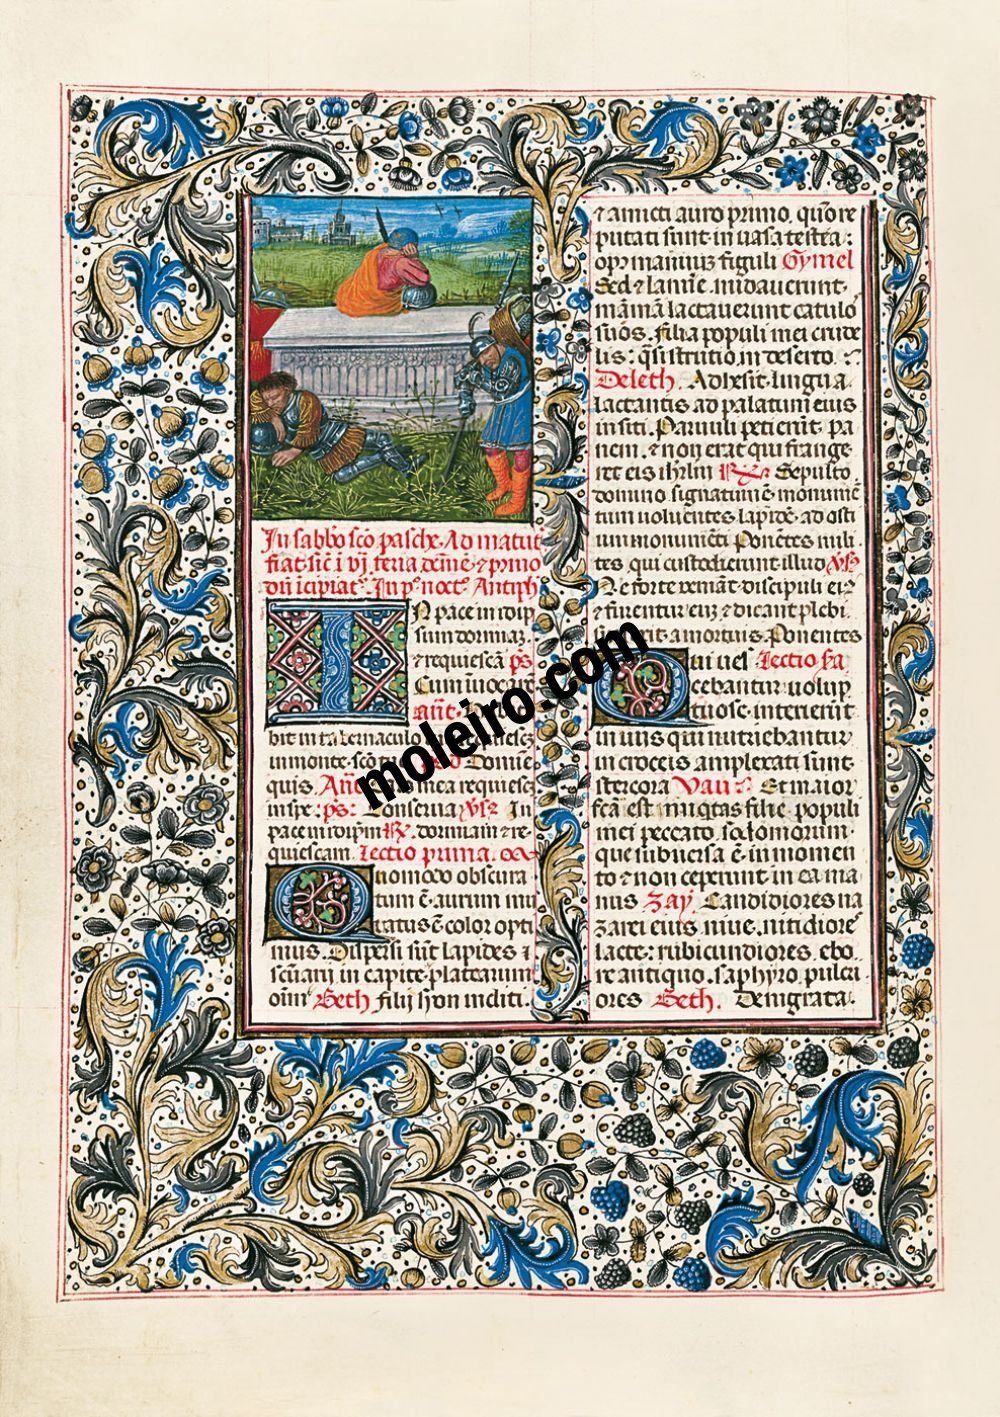 In sabbo sco pasche. Ad matut
fiat sic i vij feria dcme. & primo
dn icipiat. In p° noct° Antiph
IN pace in idip
sum dormia.
& requiescã ps
Cum invocare
añt.
bit in tabernaculo
in monte sco
quis. mea requiesc
in spe. ps. Conserva vs In
pace in idipm R dormiam & re
quiescam. Lectio prima.
Quomodo obscura
tum ē. aurum mu
tatus ē color opti
mus. Dispersi sūt lapides
in capite platearum
oim Beth filij syon incliti.
& amicti auro primo. quō re
putati sunt in vasa testea:
opʒ manuum figuli Gymel
Sed & lamie. nudaverunt
mamā lactaverunt catulo
suos. filia populi mei crude
lis: qsi strutio in deserto.
Deleth. Adhesit lingua
lactantis ad palatum eius
in siti. Parvuli petierūt pa
nem. & non erat qui frange
ret eis ihrlm R Sepulto
domino signatum ē monumē
tum volventes lapidē ad osti
um monumēti Ponētes mili
tes qui custodierunt illud vs
Ne forte veniāt discipuli ei
& furentur eum & dicant plebi
surrexit a mortuis. Ponentes
Qui ves Lectio
cebantur volup
tuose. interierūt
in viis qui nutriebantur
in croceis amplexati sunt
stercora Vau Et maior
fca est iniqtas filie populi
mei peccato sodomorum
que subversa ē in momen
to & non ceperunt in ea ma
nus Zay. Candidiores na
zarei eius nive. nitidiore
lacte: rubicundiores ebo
re antiquo. saphyro pulcri
ores Beth. Denigrata.
moleiro.com